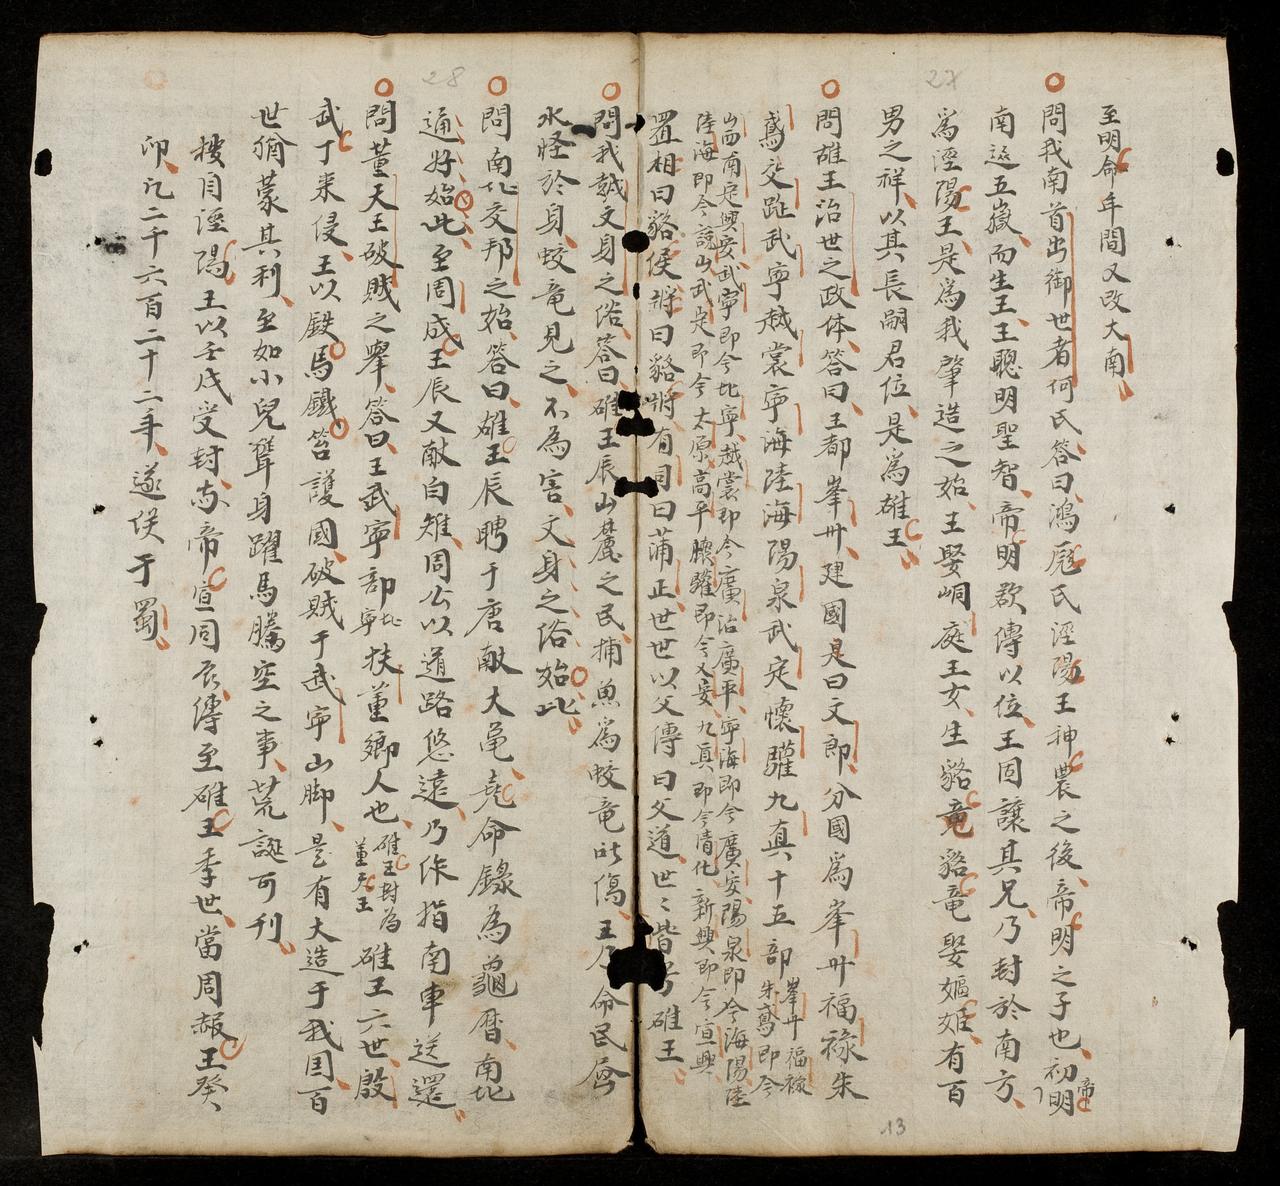 至明命年間又改大南
問我南首出御世者何氏答曰鴻厖氏涇陽王神農之後帝明之子也初帝明
南巡五嶽而生王王聰明聖智帝明欲傳以位王固讓其兄乃封於南方
為涇陽王是為我肇造之始王娶峒庭王女生貉竜貉竜娶嫗姬有百
男之祥以其長嗣君位是為雄王
問雄王治世之政体答曰王都峯州建國是曰文郎分國為峯州福祿朱
鳶交趾武寧越裳寧海陸海陽泉武定懷驩九真十五部峯州福祿朱鳶即今
山西南定興安武寧即今北寧越裳即今廣治廣平寧海即今廣安陽泉即今海陽陸
陸海即今諒山武定即今太原高平懷驩即今乂安九真即今清化新興即今宣興
置相曰貉侯將曰貉將有司曰蒲正世世以父傳曰父道世〻皆号雄王
問我越文身之俗答曰雄王辰山麓之民捕魚為蛟竜所傷王乃命民爲
水怪於身蛟竜見之不為害文身之俗始此
問南北交邦之始答曰雄王辰聘于唐献大黿堯命錄為龜曆南北
通好始此至周成王辰又献白雉周公以道路悠遠乃作指南車送還
問董天王破賊之舉答曰王武寧部北寧扶董鄉人也雄王封為董天王雄王六世殷
武丁來侵王以鉄馬鐵笞護國破賊于武寧山脚是有大造于我囯百
世猶蒙其利至如小兒聳身躍馬騰空之事荒誕可刋
按自涇陽王以壬戌受封与帝宜同辰傳至雄王季世當周赧王癸
卯凢二千六百二十二年遂俟于蜀
28
27
13